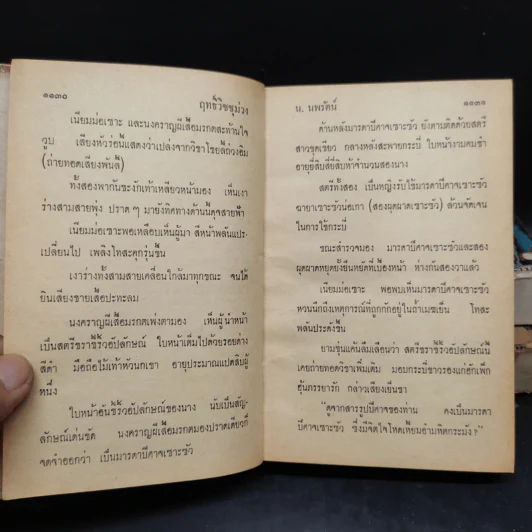 ๑๑๓๐
ฤทธิ์วิชชุม่วง
เนียมม่อเซาะ และนงคราญผีเสื้อมรกตสะท้านใจ
วูบ เสียงหัวร่อนี้แสดงว่าเปล่งจากวิชาโซยสี่ถ่วงอิม
(ถ่ายทอดเสียงพันลี้)
ทั้งสองพากันชะงักเท้าเหลียวหน้ามอง เห็นเงา
ร่างสามสายพุ่ง ปราด ๆ มายังทิศทางด้านนี้ดุจสายฟ้า
เนียมม่อเซาะพอเหลือบเห็นผู้มา สีหน้าพลันแปร-
เปลี่ยนไป เพลิงโทสะคุกรุ่นขึ้น
เงาร่างทั้งสามสายเคลื่อนใกล้มาทุกขณะ จนได้
ยินเสียงชายเสื้อปะทะลม
นงคราญผีเสื้อมรกตเพ่งตามอง เห็นผู้นำหน้า
เป็นสตรีชราขี้ริ้วอัปลักษณ์ ใบหน้าเต็มไปด้วยรอยด่าง
สีดำ มือถือไม้เท้าหัวนกเขา อายุประมาณแปดสิบผู้
หนึ่ง
ใบหน้าอันขี้ริ้วอัปลักษณ์ของนาง นับเป็นสัญ-
ลักษณ์เด่นชัด นงคราญผีเสื้อมรกตมองปราดเดียวก็
จดจำออกว่า เป็นมารดาปีศาจเซาะซัว
น. นพรัตน์
๑๑๓๑
ด้านหลังมารดาปีศาจเซาะซัว ยังตามติดด้วยสตรี
สาวชุดเขียว กลางหลังสะพายกระบี่ ใบหน้างามคมขำ
อายุยี่สิบสี่ยี่สิบห้าจำนวนสองนาง
สตรีทั้งสอง เป็นหญิงรับใช้มารดาปีศาจเซาะซัว
ฉายาเซาะซัวน่อเกา (สองผุดผาดเซาะซัว) ล้วนจัดเจน
ในการใช้กระบี่
ขณะสำรวจมอง มารดาปีศาจเซาะซัวและสอง
ผุดผาดหยุดยั้งยืนหยัดที่เบื้องหน้า ห่างกันสองวาแล้ว
เนียมม่อเซาะ พอพบเห็นมารดาปีศาจเซาะซัว
หวนนึกถึงเหตุการณ์ที่ถูกกักอยู่ในถ้ำเมฆเย็น โทสะ
พลันประดังขึ้น
ยามขุ่นแค้นลืมเลือนว่า สตรีชราขี้ริ้วอัปลักษณ์นี้
เคยถ่ายทอดวิชาเพิ่มเติม มอบกระบี่ขาวรองแก้อักเพ็ก
ฮุ้นภรรยารัก กล่าวเสียงเย็นชา
"ดูจากสารรูปปีศาจของท่าน คงเป็นมารดา
ปีศาจเซาะซัว ซึ่งมีจิตใจโหดเหี้ยมอำมหิตกระมัง?"